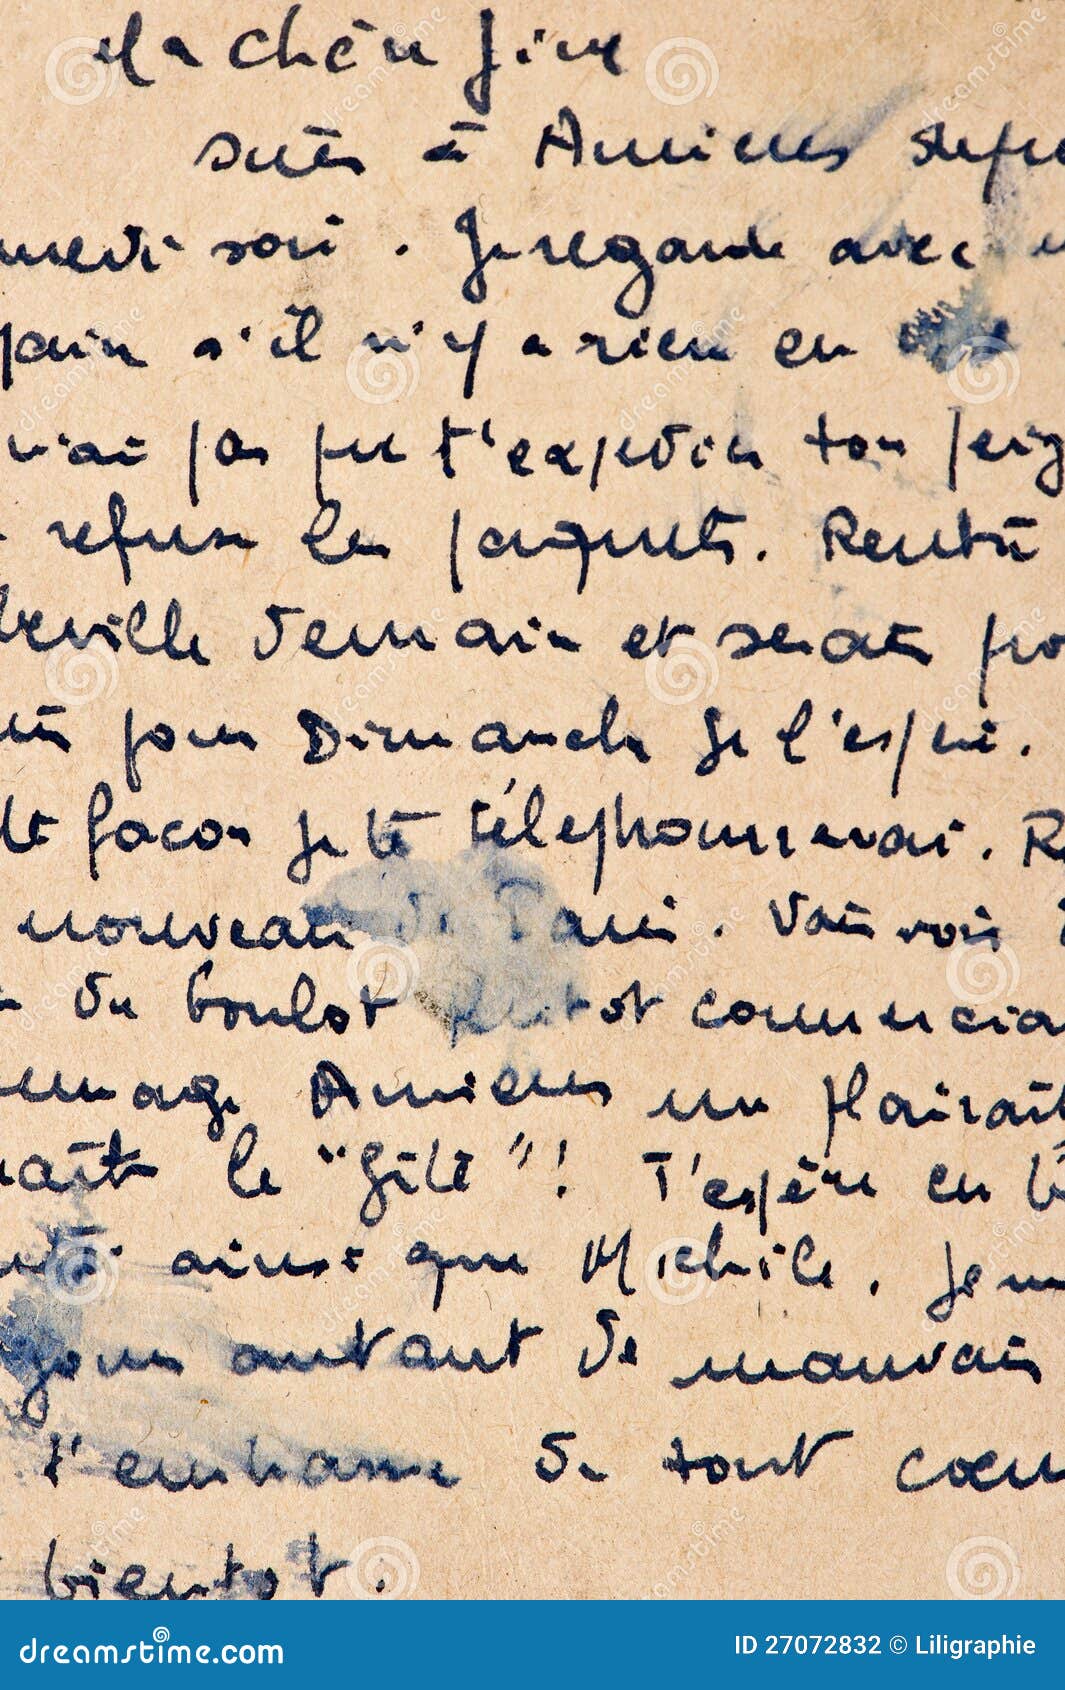 Ma chère Jine
suis à Amiens depu
medi soir. Je regarde avec
pain s'il n'y a rien en
n'ai pas pu t'expédier ton peig
refuse les paquets. Rentre
beville demain et serai pro
pour Dimanche je l'espère.
te façon je te téléphonnerai. R
nouveau de Paris. Vais voir
du boulot plutot commercia
Amiens me plairait
le "Gite"! T'espère en b
ainsi que Michèle. Je
autant de mauvais
t'embrasse de tout coeu
bientot.
dreamstime
ID 27072832 © Liligraphie